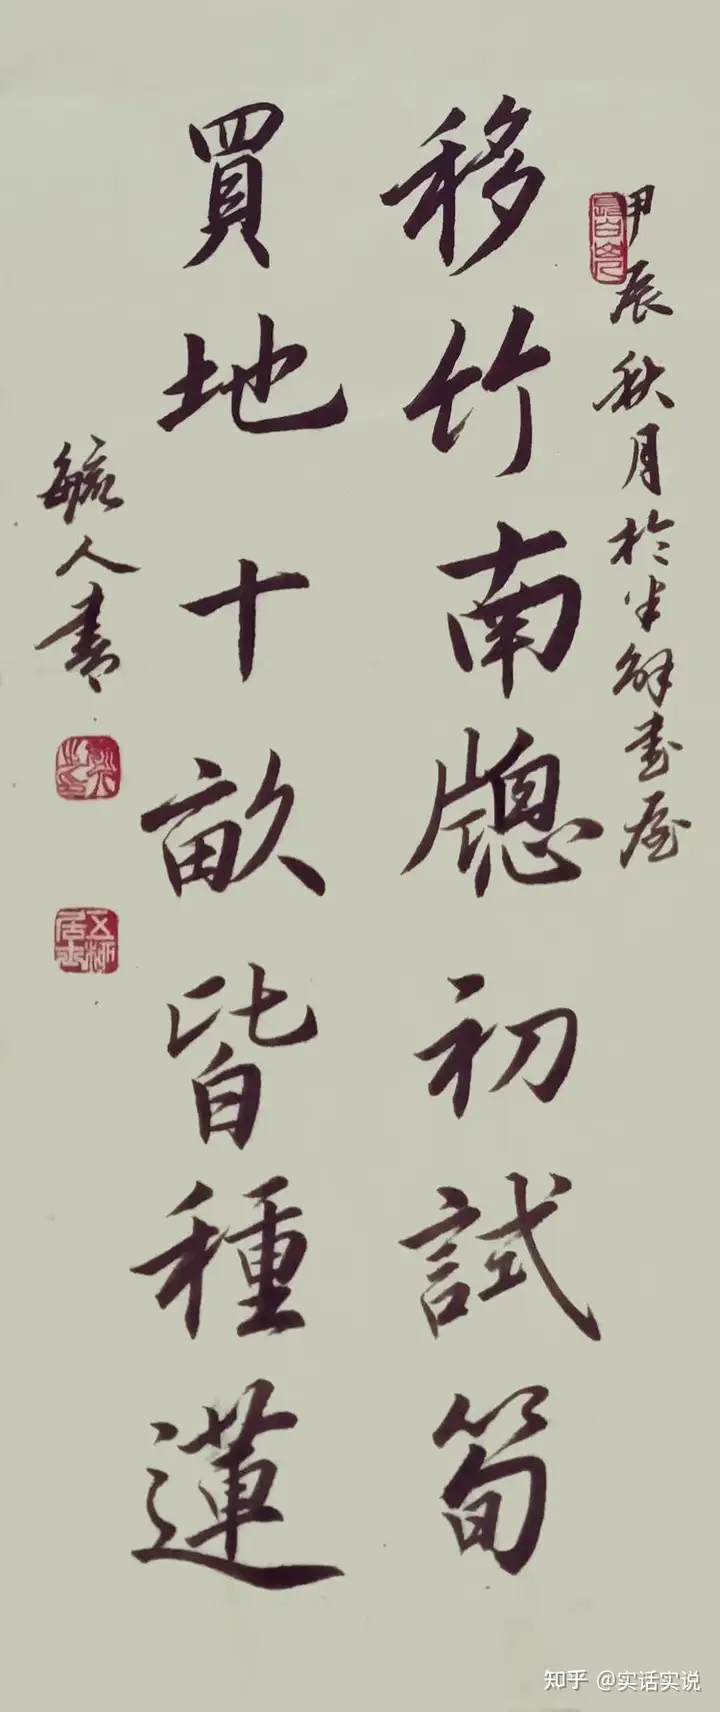 甲辰秋月於半解書屋
移竹南牕初試筍
買地十畝皆種蓮
毓人書
知乎 @实话实说